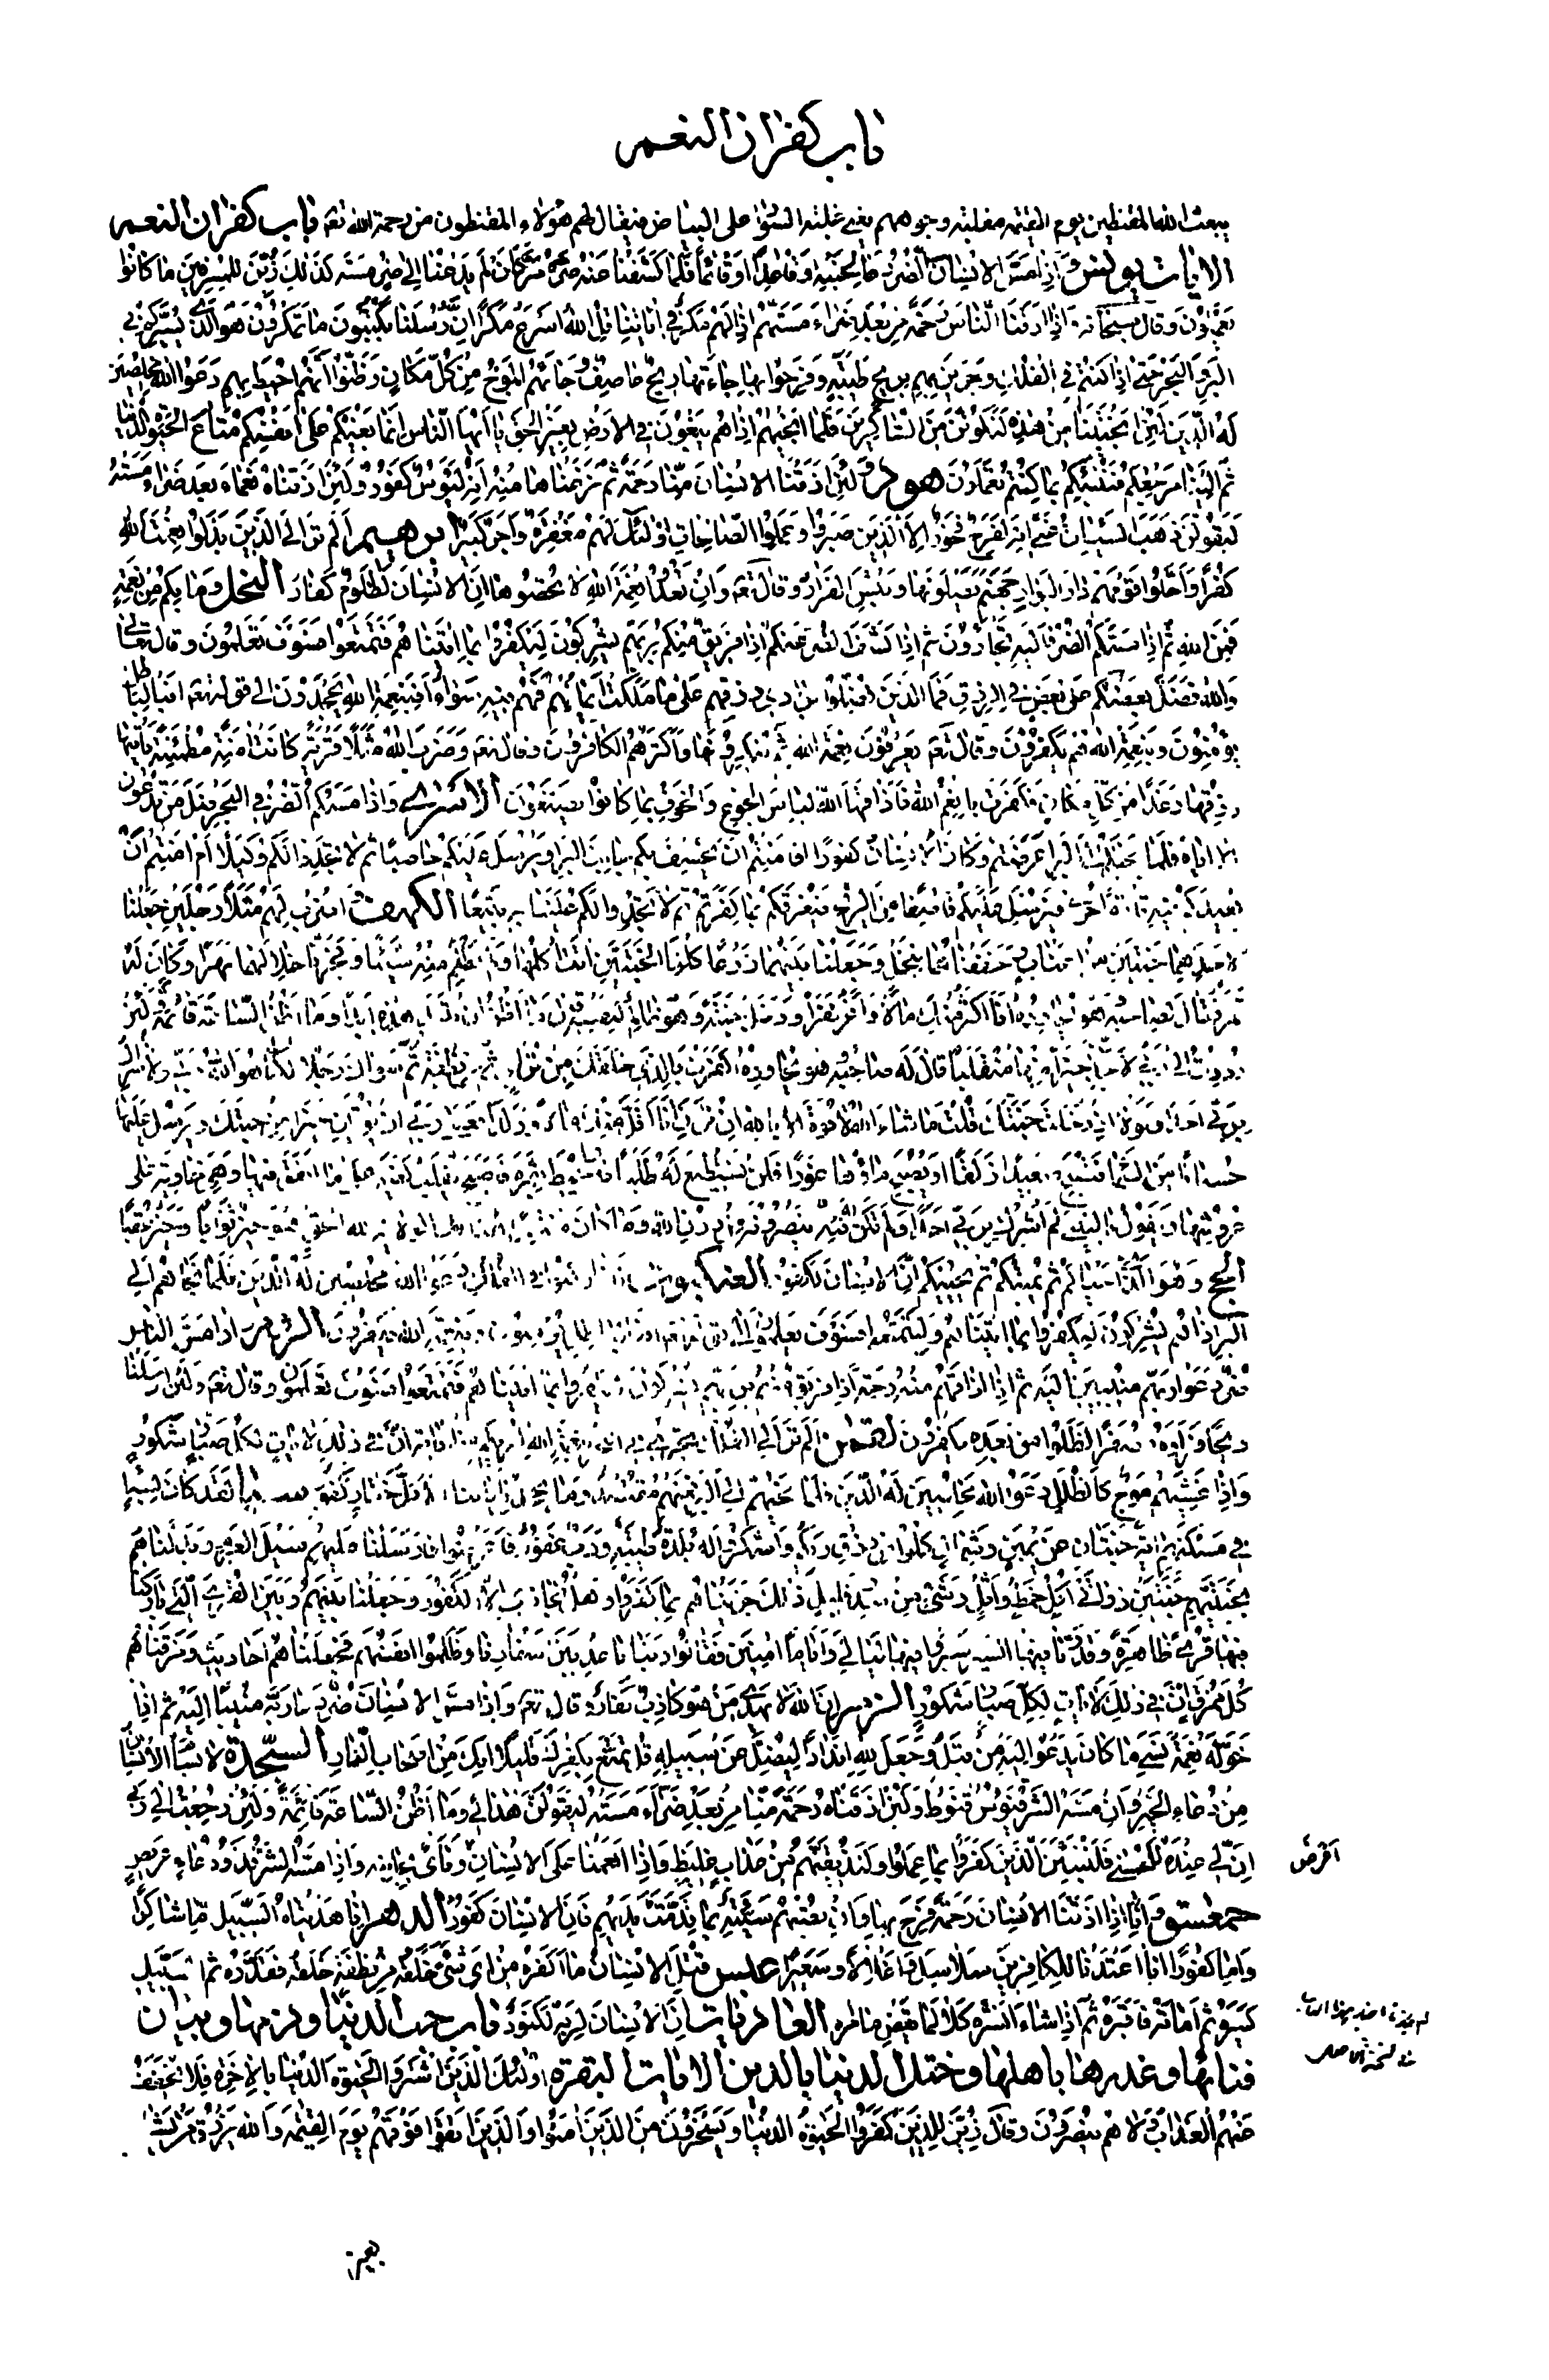 باب كفران النعم
يبعث الله المقنطين يوم القيمة مغلبة وجوههم يعنى غلبة السواد على البياض فيقال لهم هؤلاء المقنطون من رحمة الله تعه باب كفران النعم
الايات يونس وَاِذا مَسَّ الاِنْسانَ الضُّرُّ دَعانا لِجَنْبِهِ اَوْ قاعِداً اَوْ قائِماً فَلَمّا كَشَفْنا عَنْهُ ضُرَّهُ مَرَّ كَاَنْ لَمْ يَدْعُنا اِلى ضُرٍّ مَسَّهُ كَذلِكَ زُيِّنَ لِلْمُسْرِفينَ ما كانُوا
يَعْمَلُونَ وقال سبحانه وَاِذا اَذَقْنَا النّاسَ رَحْمَةً مِنْ بَعْدِ ضَرّاءَ مَسَّتْهُمْ اِذا لَهُمْ مَكْرٌ في اٰياتِنا قُلِ اللهُ اَسْرَعُ مَكْراً اِنَّ رُسُلَنا يَكْتُبُونَ ما تَمْكُرُونَ هُوَ الَّذي يُسَيِّرُكُمْ فِي
الْبَرِّ وَالْبَحْرِ حَتّى اِذا كُنْتُمْ فِي الْفُلْكِ وَجَرَيْنَ بِهِمْ بِريحٍ طَيِّبَةٍ وَفَرِحُوا بِها جاءَتْها ريحٌ عاصِفٌ وَجاءَهُمُ الْمَوْجُ مِنْ كُلِّ مَكانٍ وَظَنُّوا اَنَّهُمْ اُحيطَ بِهِمْ دَعَوُا اللهَ مُخْلِصينَ
لَهُ الدّينَ لَئِنْ اَنْجَيْتَنا مِنْ هذِهِ لَنَكُونَنَّ مِنَ الشّاكِرينَ فَلَمّا اَنْجٰيهُمْ اِذا هُمْ يَبْغُونَ فِي الاَرْضِ بِغَيْرِ الْحَقِّ يا اَيُّهَا النّاسُ اِنَّما بَغْيُكُمْ عَلى اَنْفُسِكُمْ مَتاعَ الْحَيٰوةِ الدُّنْيا
ثُمَّ اِلَيْنا مَرْجِعُكُمْ فَنُنَبِّئُكُمْ بِما كُنْتُمْ تَعْمَلُونَ هود وَلَئِنْ اَذَقْنَا الاِنْسانَ مِنّا رَحْمَةً ثُمَّ نَزَعْناها مِنْهُ اِنَّهُ لَيَؤُسٌ كَفُورٌ وَلَئِنْ اَذَقْناهُ نَعْماءَ بَعْدَ ضَرّاءَ مَسَّتْهُ
لَيَقُولَنَّ ذَهَبَ السَّيِّئاتُ عَنّي اِنَّهُ لَفَرِحٌ فَخُورٌ اِلاَّ الَّذينَ صَبَرُوا وَعَمِلُوا الصّالِحاتِ اُولئِكَ لَهُمْ مَغْفِرَةٌ وَاَجْرٌ كَبيرٌ ابرهيم اَلَمْ تَرَ اِلَى الَّذينَ بَدَّلُوا نِعْمَتَ اللهِ
كُفْراً وَاَحَلُّوا قَوْمَهُمْ دارَ الْبَوارِ جَهَنَّمَ يَصْلَوْنَها وَبِئْسَ الْقَرارُ وقال تعه وَاِنْ تَعُدُّوا نِعْمَةَ اللهِ لا تُحْصُوها اِنَّ الاِنْسانَ لَظَلُومٌ كَفّارٌ النحل وَما بِكُمْ مِنْ نِعْمَةٍ
فَمِنَ اللهِ ثُمَّ اِذا مَسَّكُمُ الضُّرُّ فَاِلَيْهِ تَجْاَرُونَ ثُمَّ اِذا كَشَفَ الضُّرَّ عَنْكُمْ اِذا فَريقٌ مِنْكُمْ بِرَبِّهِمْ يُشْرِكُونَ لِيَكْفُرُوا بِما اٰتَيْناهُمْ فَتَمَتَّعُوا فَسَوْفَ تَعْلَمُونَ وقال تعالى
وَاللهُ فَضَّلَ بَعْضَكُمْ عَلى بَعْضٍ فِي الرِّزْقِ فَمَا الَّذينَ فُضِّلُوا بِرادّي رِزْقِهِمْ عَلى ما مَلَكَتْ اَيْمانُهُمْ فَهُمْ فيهِ سَواءٌ اَفَبِنِعْمَةِ اللهِ يَجْحَدُونَ الى قوله تعه اَفَبِالْباطِلِ
يُؤْمِنُونَ وَبِنِعْمَةِ اللهِ هُمْ يَكْفُرُونَ وقال تعه يَعْرِفُونَ نِعْمَةَ اللهِ ثُمَّ يُنْكِرُونَها وَاَكْثَرُهُمُ الْكافِرُونَ وقال تعه وَضَرَبَ اللهُ مَثَلاً قَرْيَةً كانَتْ اٰمِنَةً مُطْمَئِنَّةً يَأْتيها
رِزْقُها رَغَداً مِنْ كُلِّ مَكانٍ فَكَفَرَتْ بِاَنْعُمِ اللهِ فَاَذاقَهَا اللهُ لِباسَ الْجُوعِ وَالْخَوْفِ بِما كانُوا يَصْنَعُونَ الاسرى وَاِذا مَسَّكُمُ الضُّرُّ فِي الْبَحْرِ ضَلَّ مَنْ تَدْعُونَ
اِلاّ اِيّاهُ فَلَمّا نَجّيٰكُمْ اِلَى الْبَرِّ اَعْرَضْتُمْ وَكانَ الاِنْسانُ كَفُوراً اَفَاَمِنْتُمْ اَنْ يَخْسِفَ بِكُمْ جانِبَ الْبَرِّ اَوْ يُرْسِلَ عَلَيْكُمْ حاصِباً ثُمَّ لا تَجِدُوا لَكُمْ وَكيلاً اَمْ اَمِنْتُمْ اَنْ
يُعيدَكُمْ فيهِ تارَةً اُخْرى فَيُرْسِلَ عَلَيْكُمْ قاصِفاً مِنَ الرّيحِ فَيُغْرِقَكُمْ بِما كَفَرْتُمْ ثُمَّ لا تَجِدُوا لَكُمْ عَلَيْنا بِهِ تَبيعاً الكهف وَاضْرِبْ لَهُمْ مَثَلاً رَجُلَيْنِ جَعَلْنا
لاَحَدِهِما جَنَّتَيْنِ مِنْ اَعْنابٍ وَحَفَفْناهُما بِنَخْلٍ وَجَعَلْنا بَيْنَهُما زَرْعاً كِلْتَا الْجَنَّتَيْنِ اٰتَتْ اُكُلَها وَلَمْ تَظْلِمْ مِنْهُ شَيْئاً وَفَجَّرْنا خِلالَهُما نَهَراً وَكانَ لَهُ
ثَمَرٌ فَقالَ لِصاحِبِهِ وَهُوَ يُحاوِرُهُ اَنَا اَكْثَرُ مِنْكَ مالاً وَاَعَزُّ نَفَراً وَدَخَلَ جَنَّتَهُ وَهُوَ ظالِمٌ لِنَفْسِهِ قالَ ما اَظُنُّ اَنْ تَبيدَ هذِهِ اَبَداً وَما اَظُنُّ السّاعَةَ قائِمَةً وَلَئِنْ
رُدِدْتُ اِلى رَبّي لاَجِدَنَّ خَيْراً مِنْها مُنْقَلَباً قالَ لَهُ صاحِبُهُ وَهُوَ يُحاوِرُهُ اَكَفَرْتَ بِالَّذي خَلَقَكَ مِنْ تُرابٍ ثُمَّ مِنْ نُطْفَةٍ ثُمَّ سَوّاكَ رَجُلاً لكِنَّا هُوَ اللهُ رَبّي وَلا اُشْرِكُ
بِرَبّي اَحَداً وَلَوْلا اِذْ دَخَلْتَ جَنَّتَكَ قُلْتَ ما شاءَ اللهُ لا قُوَّةَ اِلاّ بِاللهِ اِنْ تَرَنِ اَنَا اَقَلَّ مِنْكَ مالاً وَوَلَداً فَعَسى رَبّي اَنْ يُؤْتِيَنِ خَيْراً مِنْ جَنَّتِكَ وَيُرْسِلَ عَلَيْها
حُسْباناً مِنَ السَّماءِ فَتُصْبِحَ صَعيداً زَلَقاً اَوْ يُصْبِحَ ماؤُها غَوْراً فَلَنْ تَسْتَطيعَ لَهُ طَلَباً وَاُحيطَ بِثَمَرِهِ فَاَصْبَحَ يُقَلِّبُ كَفَّيْهِ عَلى ما اَنْفَقَ فيها وَهِيَ خاوِيَةٌ عَلى
عُرُوشِها وَيَقُولُ يا لَيْتَني لَمْ اُشْرِكْ بِرَبّي اَحَداً وَلَمْ تَكُنْ لَهُ فِئَةٌ يَنْصُرُونَهُ مِنْ دُونِ اللهِ وَما كانَ مُنْتَصِراً هُنالِكَ الْوَلايَةُ لِلّهِ الْحَقِّ هُوَ خَيْرٌ ثَواباً وَخَيْرٌ عُقْباً
الحج وَهُوَ الَّذي اَحْياكُمْ ثُمَّ يُميتُكُمْ ثُمَّ يُحْييكُمْ اِنَّ الاِنْسانَ لَكَفُورٌ العنكبوت فَاِذا رَكِبُوا فِي الْفُلْكِ دَعَوُا اللهَ مُخْلِصينَ لَهُ الدّينَ فَلَمّا نَجّاهُمْ اِلَى
الْبَرِّ اِذا هُمْ يُشْرِكُونَ لِيَكْفُرُوا بِما اٰتَيْناهُمْ وَلِيَتَمَتَّعُوا فَسَوْفَ يَعْلَمُونَ الى قوله تعه اَفَبِالْباطِلِ يُؤْمِنُونَ وَبِنِعْمَةِ اللهِ يَكْفُرُونَ الروم وَاِذا مَسَّ النّاسَ
ضُرٌّ دَعَوْا رَبَّهُمْ مُنيبينَ اِلَيْهِ ثُمَّ اِذا اَذاقَهُمْ مِنْهُ رَحْمَةً اِذا فَريقٌ مِنْهُمْ بِرَبِّهِمْ يُشْرِكُونَ لِيَكْفُرُوا بِما اٰتَيْناهُمْ فَتَمَتَّعُوا فَسَوْفَ تَعْلَمُونَ وقال تعه وَلَئِنْ اَرْسَلْنا
ريحاً فَرَاَوْهُ مُصْفَرّاً لَظَلُّوا مِنْ بَعْدِهِ يَكْفُرُونَ لقمان اَلَمْ تَرَ اَنَّ الْفُلْكَ تَجْري فِي الْبَحْرِ بِنِعْمَةِ اللهِ لِيُرِيَكُمْ مِنْ اٰياتِهِ اِنَّ في ذلِكَ لاٰياتٍ لِكُلِّ صَبّارٍ شَكُورٍ
وَاِذا غَشِيَهُمْ مَوْجٌ كَالظُّلَلِ دَعَوُا اللهَ مُخْلِصينَ لَهُ الدّينَ فَلَمّا نَجّيٰهُمْ اِلَى الْبَرِّ فَمِنْهُمْ مُقْتَصِدٌ وَما يَجْحَدُ بِاٰياتِنا اِلاّ كُلُّ خَتّارٍ كَفُورٍ سبا لَقَدْ كانَ لِسَبَاٍ
في مَسْكَنِهِمْ اٰيَةٌ جَنَّتانِ عَنْ يَمينٍ وَشِمالٍ كُلُوا مِنْ رِزْقِ رَبِّكُمْ وَاشْكُرُوا لَهُ بَلْدَةٌ طَيِّبَةٌ وَرَبٌّ غَفُورٌ فَاَعْرَضُوا فَاَرْسَلْنا عَلَيْهِمْ سَيْلَ الْعَرِمِ وَبَدَّلْناهُمْ
بِجَنَّتَيْهِمْ جَنَّتَيْنِ ذَواتَيْ اُكُلٍ خَمْطٍ وَاَثْلٍ وَشَيْءٍ مِنْ سِدْرٍ قَليلٍ ذلِكَ جَزَيْناهُمْ بِما كَفَرُوا وَهَلْ نُجازي اِلاَّ الْكَفُورَ وَجَعَلْنا بَيْنَهُمْ وَبَيْنَ الْقُرَى الَّتي بارَكْنا
فيها قُرىً ظاهِرَةً وَقَدَّرْنا فيهَا السَّيْرَ سيرُوا فيها لَيالِيَ وَاَيّاماً اٰمِنينَ فَقالُوا رَبَّنا باعِدْ بَيْنَ اَسْفارِنا وَظَلَمُوا اَنْفُسَهُمْ فَجَعَلْناهُمْ اَحاديثَ وَمَزَّقْناهُمْ
كُلَّ مُمَزَّقٍ اِنَّ في ذلِكَ لاٰياتٍ لِكُلِّ صَبّارٍ شَكُورٍ الزمر اِنَّ اللهَ لا يَهْدي مَنْ هُوَ كاذِبٌ كَفّارٌ وقال تعه وَاِذا مَسَّ الاِنْسانَ ضُرٌّ دَعا رَبَّهُ مُنيباً اِلَيْهِ ثُمَّ اِذا
خَوَّلَهُ نِعْمَةً مِنْهُ نَسِيَ ما كانَ يَدْعُو اِلَيْهِ مِنْ قَبْلُ وَجَعَلَ لِلّهِ اَنْداداً لِيُضِلَّ عَنْ سَبيلِهِ قُلْ تَمَتَّعْ بِكُفْرِكَ قَليلاً اِنَّكَ مِنْ اَصْحابِ النّارِ السجدة لا يَسْأَمُ الاِنْسانُ
مِنْ دُعاءِ الْخَيْرِ وَاِنْ مَسَّهُ الشَّرُّ فَيَؤُسٌ قَنُوطٌ وَلَئِنْ اَذَقْناهُ رَحْمَةً مِنّا مِنْ بَعْدِ ضَرّاءَ مَسَّتْهُ لَيَقُولَنَّ هذا لي وَما اَظُنُّ السّاعَةَ قائِمَةً وَلَئِنْ رُجِعْتُ اِلى رَبّي
اِنَّ لي عِنْدَهُ لَلْحُسْنى فَلَنُنَبِّئَنَّ الَّذينَ كَفَرُوا بِما عَمِلُوا وَلَنُذيقَنَّهُمْ مِنْ عَذابٍ غَليظٍ وَاِذا اَنْعَمْنا عَلَى الاِنْسانِ وَنَأى بِجانِبِهِ وَاِذا مَسَّهُ الشَّرُّ فَذُو دُعاءٍ عَريضٍ
اعرض
حمعسق وَاِنّا اِذا اَذَقْنَا الاِنْسانَ رَحْمَةً فَرِحَ بِها وَاِنْ تُصِبْهُمْ سَيِّئَةٌ بِما قَدَّمَتْ اَيْديهِمْ فَاِنَّ الاِنْسانَ كَفُورٌ الدهر اِنّا هَدَيْناهُ السَّبيلَ اِمّا شاكِراً
وَاِمّا كَفُوراً اِنّا اَعْتَدْنا لِلْكافِرينَ سَلاسِلَ وَاَغْلالاً وَسَعيراً عبس قُتِلَ الاِنْسانُ ما اَكْفَرَهُ مِنْ اَيِّ شَيْءٍ خَلَقَهُ مِنْ نُطْفَةٍ خَلَقَهُ فَقَدَّرَهُ ثُمَّ السَّبيلَ
يَسَّرَهُ ثُمَّ اَماتَهُ فَاَقْبَرَهُ ثُمَّ اِذا شاءَ اَنْشَرَهُ كَلاّ لَمّا يَقْضِ ما اَمَرَهُ العاديات اِنَّ الاِنْسانَ لِرَبِّهِ لَكَنُودٌ باب حب الدنيا وذمها وبيان
فنائها وغدرها باهلها وختل الدنيا بالدين الايات البقرة اُولئِكَ الَّذينَ اشْتَرَوُا الْحَيٰوةَ الدُّنْيا بِالاٰخِرَةِ فَلا يُخَفَّفُ
عَنْهُمُ الْعَذابُ وَلا هُمْ يُنْصَرُونَ وقال زُيِّنَ لِلَّذينَ كَفَرُوا الْحَيٰوةُ الدُّنْيا وَيَسْخَرُونَ مِنَ الَّذينَ اٰمَنُوا وَالَّذينَ اتَّقَوْا فَوْقَهُمْ يَوْمَ الْقِيٰمَةِ وَاللهُ يَرْزُقُ مَنْ يَشاءُ
بغير